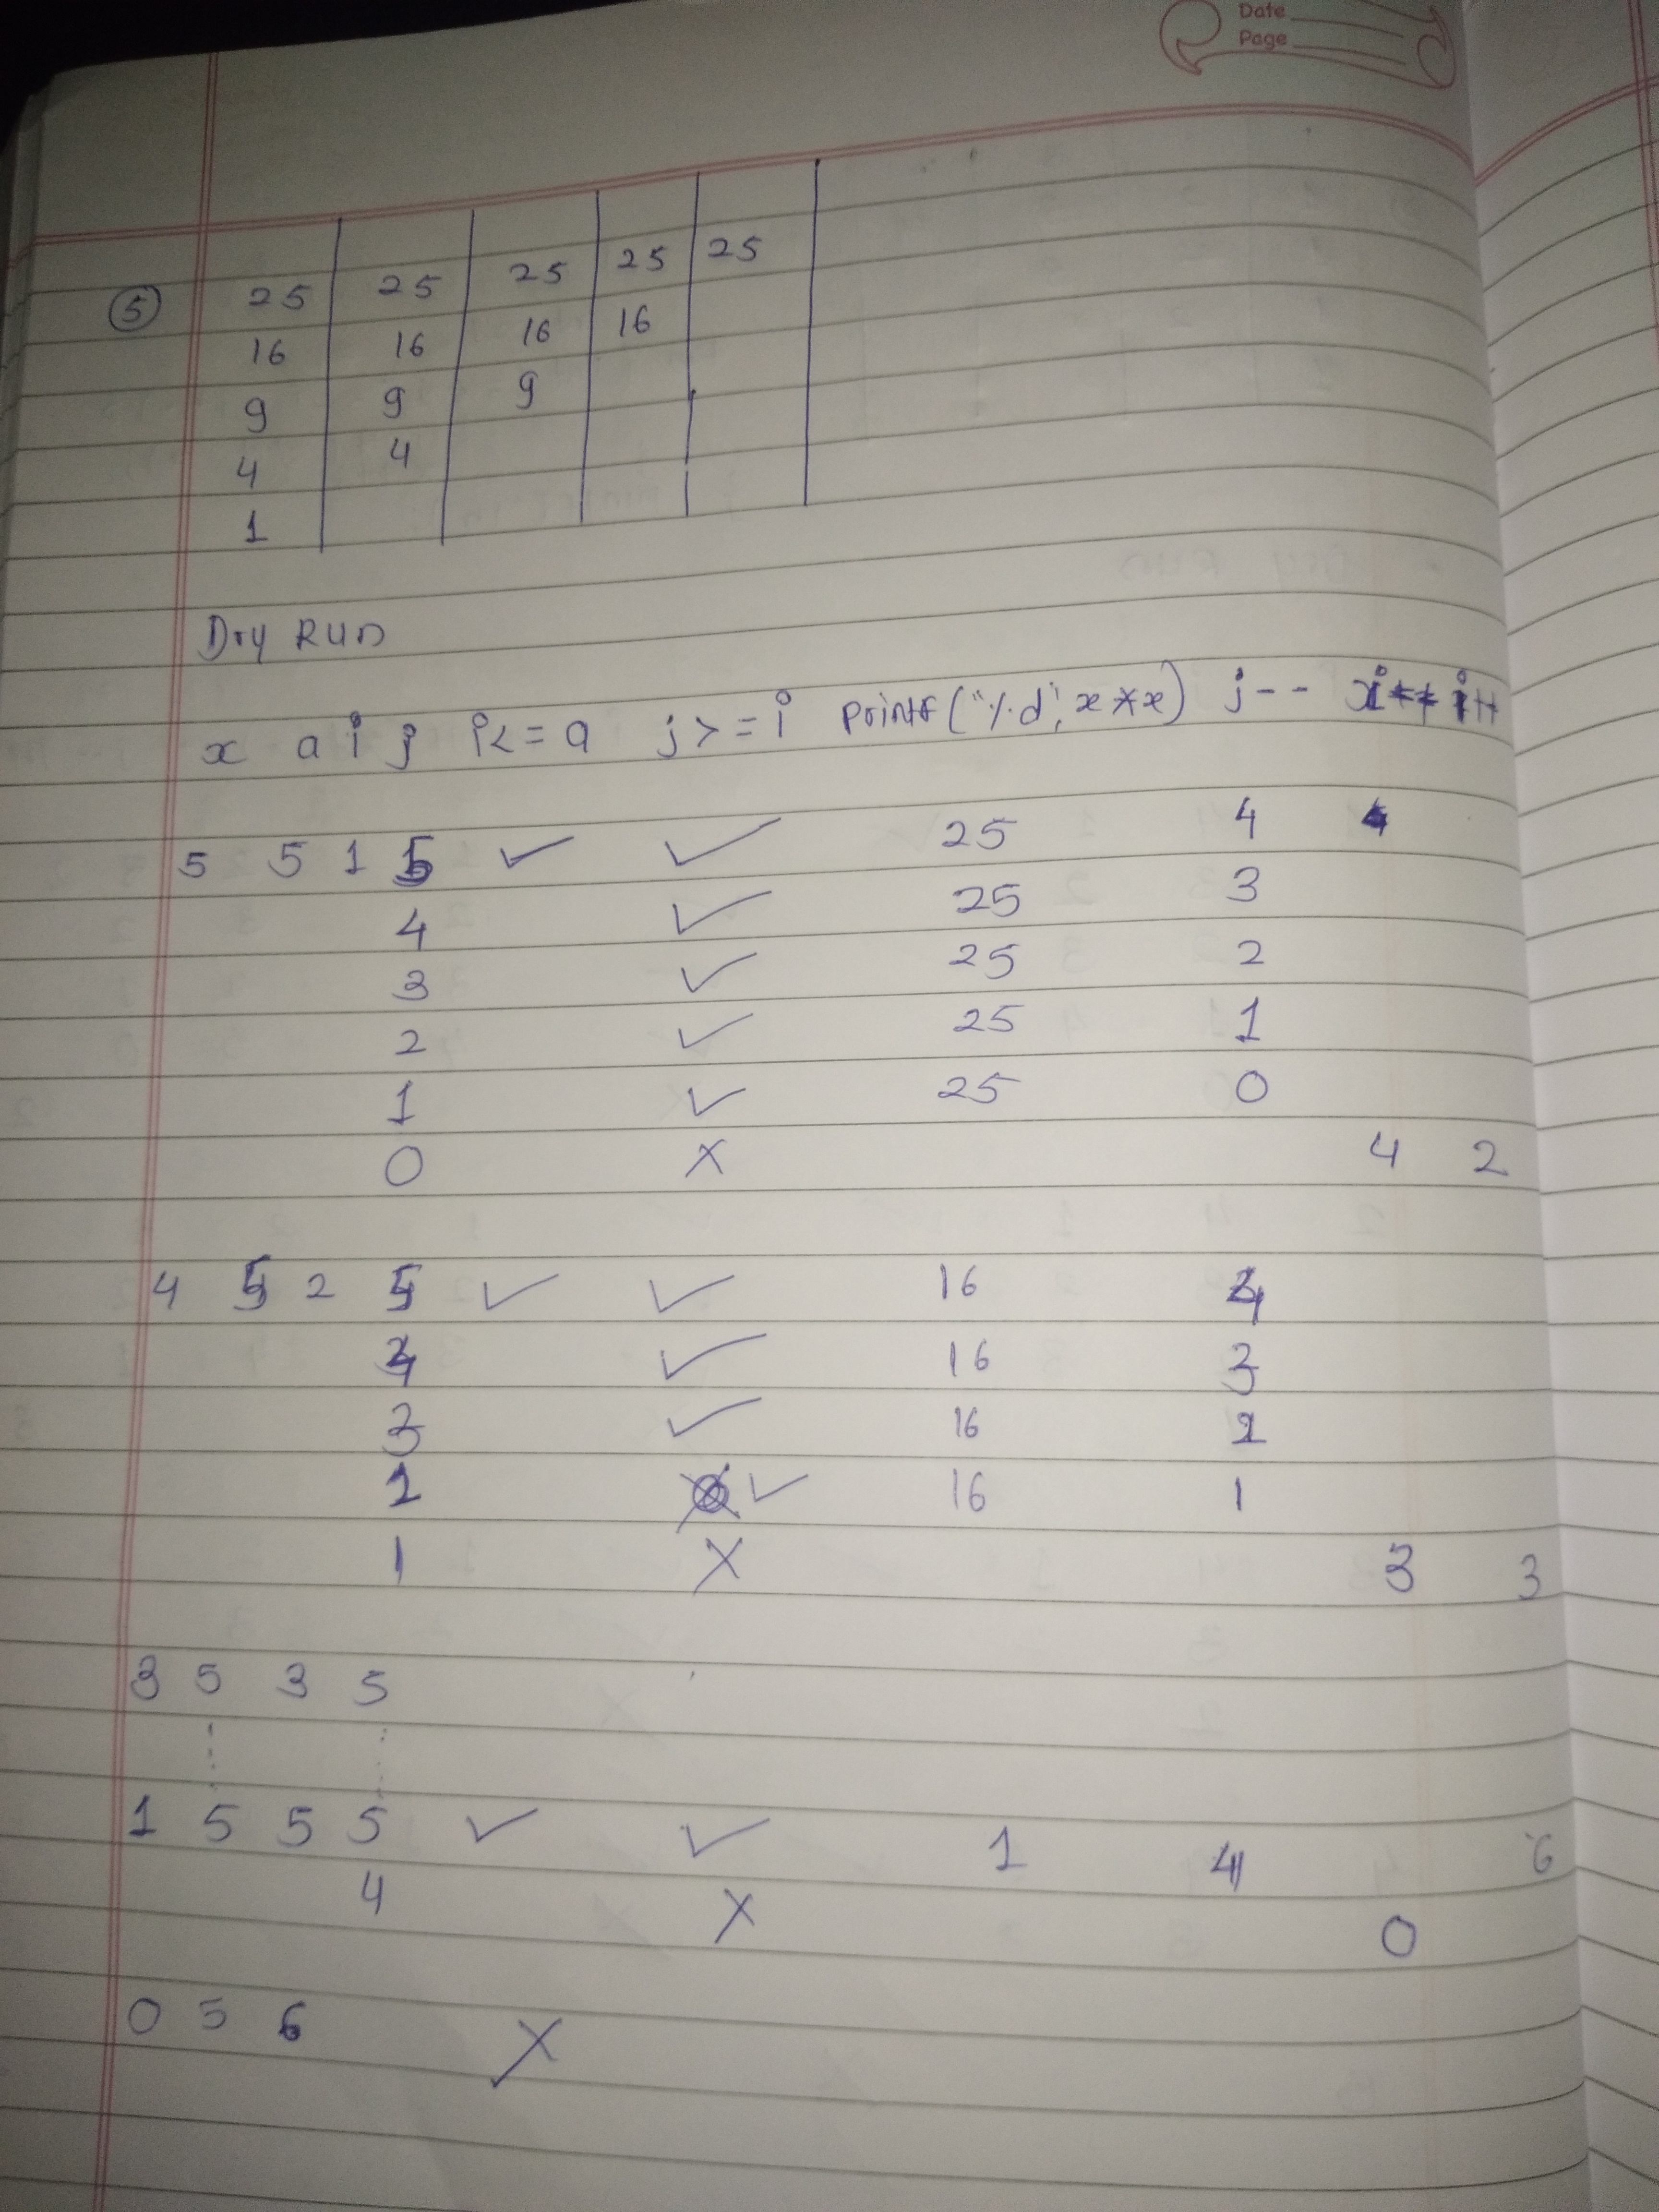 Date
Page
⑤ 25 25 25 25 25
16 16 16 16
9 9 9
4 4
1
Dry Run
x a i j i<=a j>=i printf("%d", x*x) j-- i++
5 5 1 5 ✓ ✓ 25 4
4 ✓ 25 3
3 ✓ 25 2
2 ✓ 25 1
1 ✓ 25 0
0 X 4 2
4 5 2 5 ✓ ✓ 16 4
4 ✓ 16 3
3 ✓ 16 2
2 ✓ 16 1
1 X 3 3
3 5 3 5
1 5 5 5 ✓ ✓ 1 4 6
4 X 0
0 5 6 X